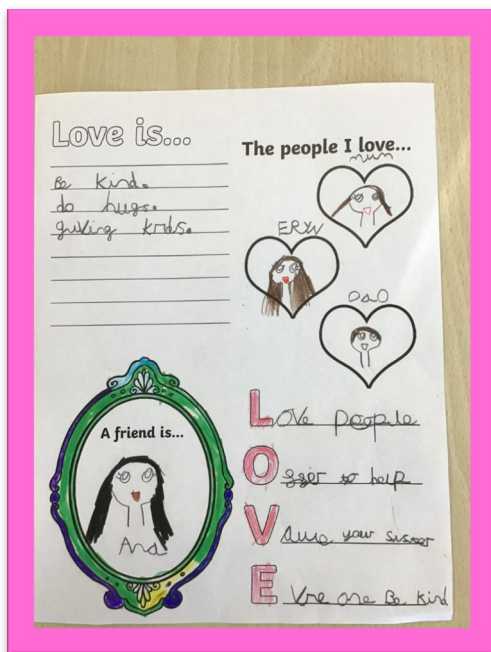 Love is...
Be kind.
do hugs.
guving kids.
The people I love...
mum
ERYN
DaD
A friend is...
Ana
LOVE people
Offer to help
Value your sisster
Evre one Be kind